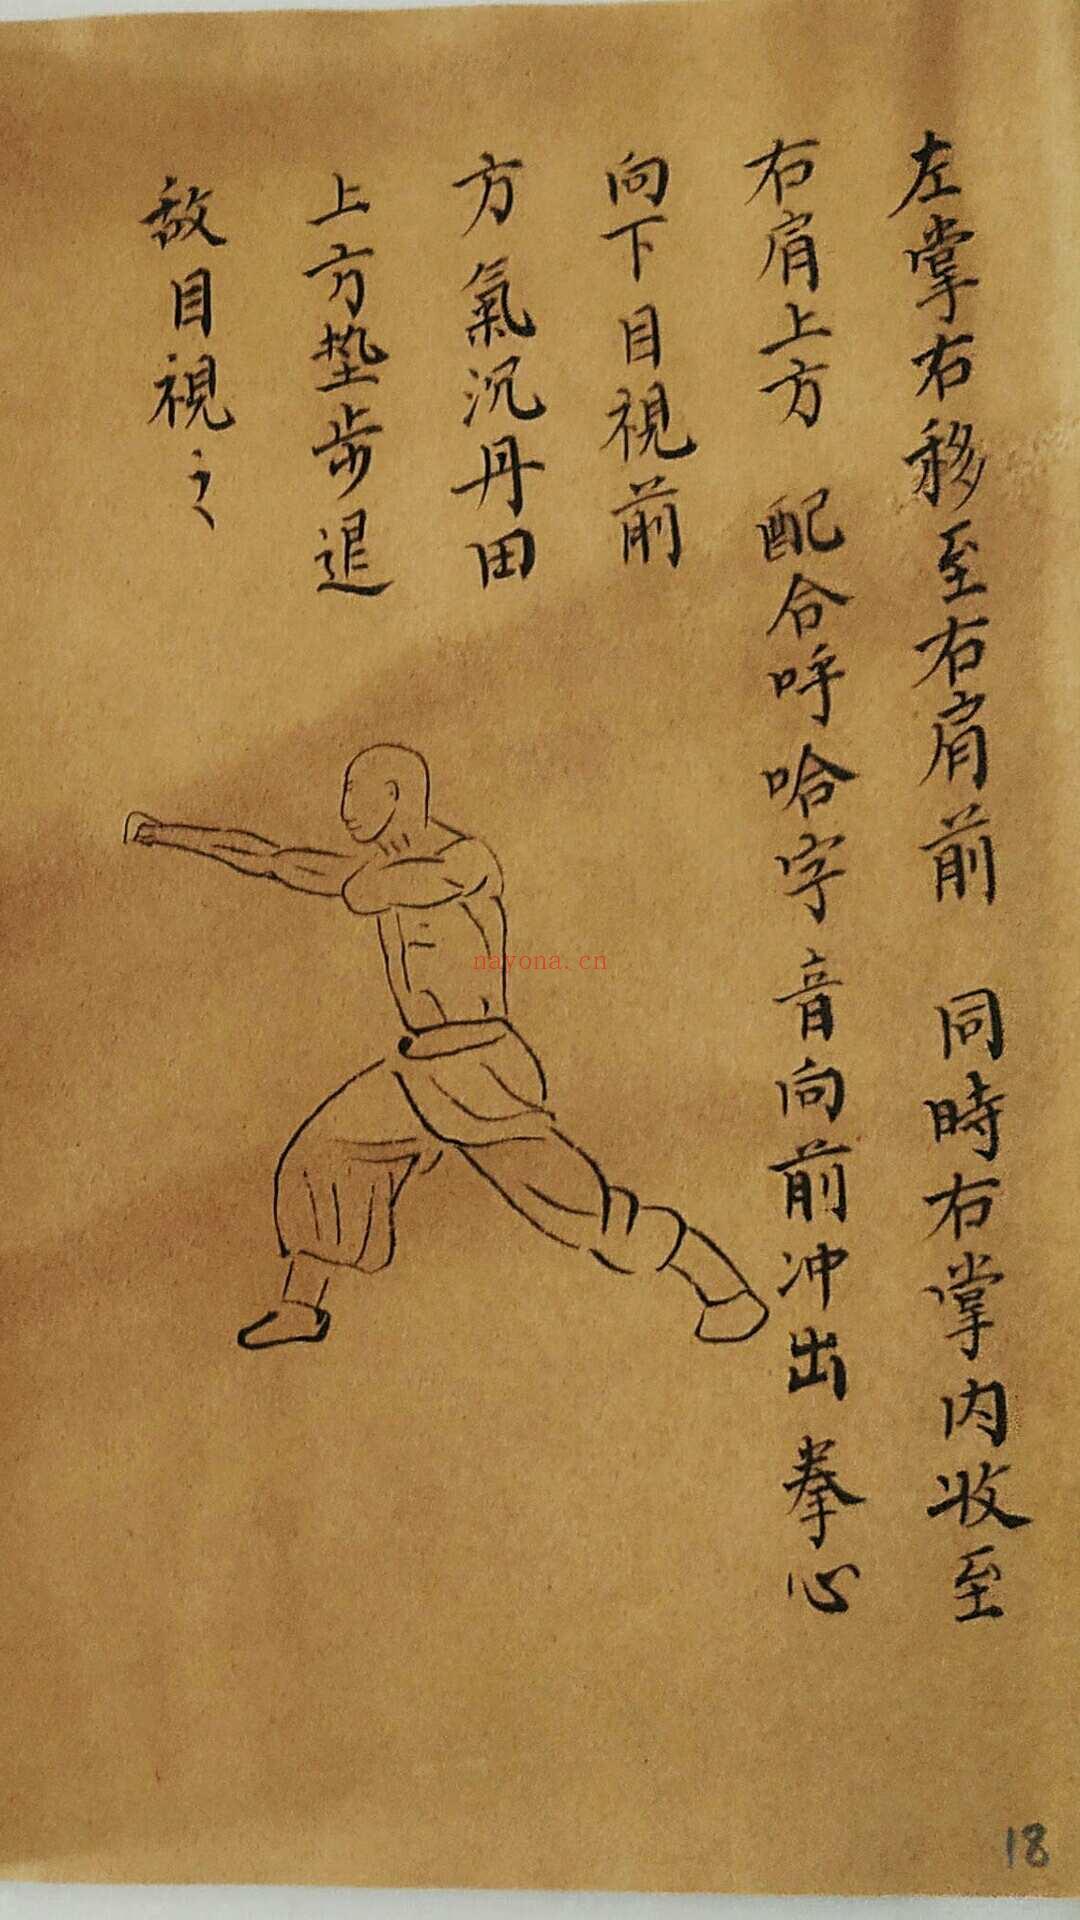 左掌右移至右肩前 同時右掌内收至
右肩上方 配合呼哈字音向前冲出拳心
向下目視前
方氣沉丹田
上方垫步退
敌目視之
nayona.cn
18